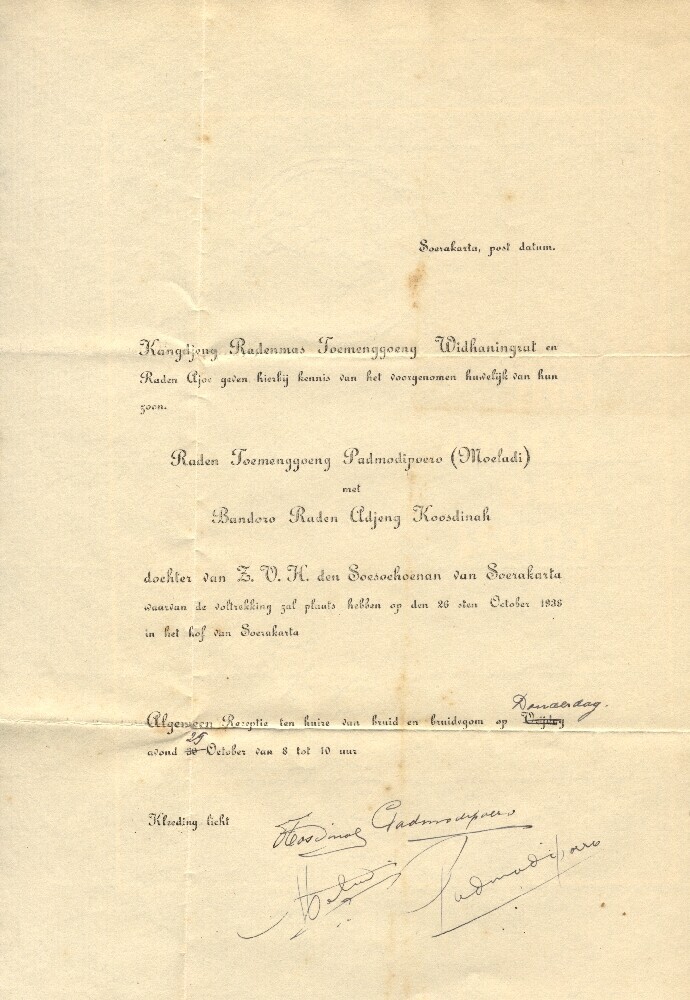 Soerakarta, post datum.
Kangdjeng Radenmas Toemenggoeng Widhaningrat en
Raden Ajoe geven hierbij kennis van het voorgenomen huwelijk van hun
zoon.
Raden Toemenggoeng Padmodipoero (Moeladi)
met
Bandoro Raden Adjeng Koosdinah
dochter van Z. V. H. den Soesoehoenan van Soerakarta
waarvan de voltrekking zal plaats hebben op den 26 sten October 1938
in het hof van Soerakarta
Donderdag.
Algemeen Receptie ten huize van bruid en bruidegom op Vrijdag
29
avond October van 8 tot 10 uur
Kleeding licht
Padmodipoero
Padmodipoero